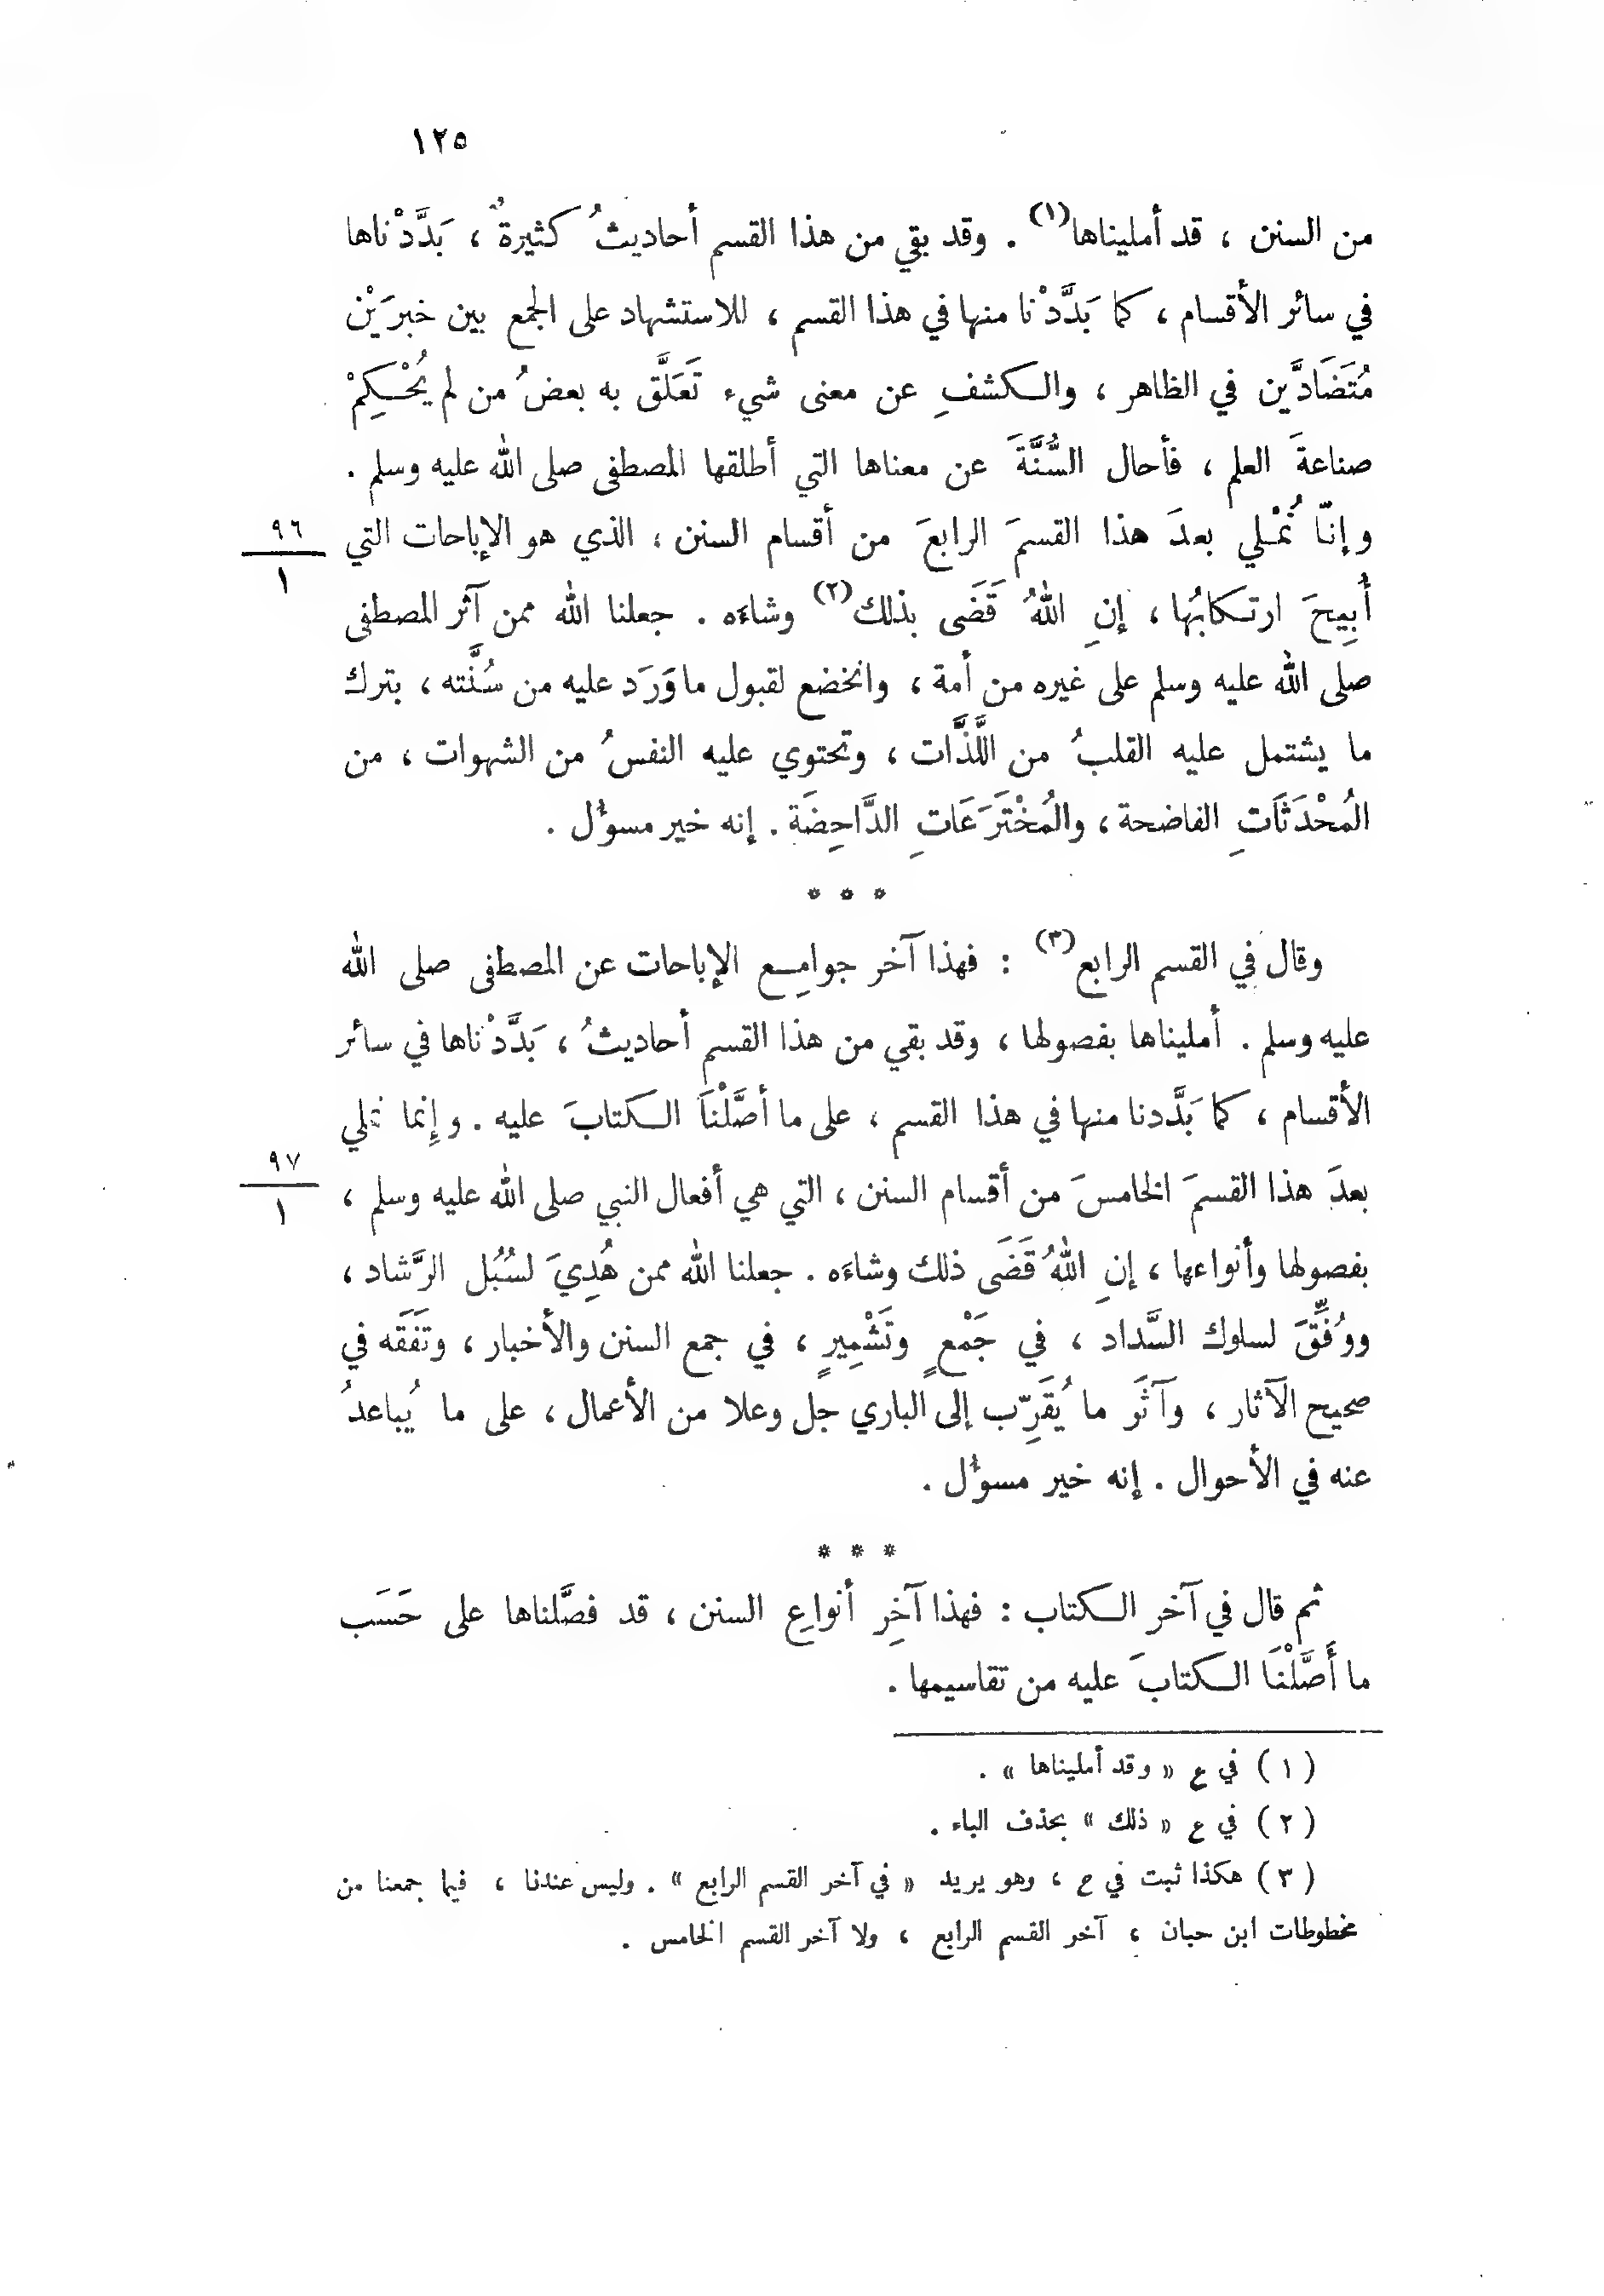 ١٢٥
من السنن ، قد أمليناها(١) . وقد بقي من هذا القسم أحاديثُ كثيرةٌ ، بَدَّدْناها
في سائر الأقسام ، كما بَدَّدْنا منها في هذا القسم ، للاستشهاد على الجمع بين خبرَيْن
مُتَضَادَّين في الظاهر ، والكشفِ عن معنى شيء تَعَلَّق به بعضُ من لم يُحْكِمْ
صناعةَ العلم ، فأحال السُّنَّةَ عن معناها التي أطلقها المصطفى صلى الله عليه وسلم .
وإنّا نُمْلي بعدَ هذا القسمَ الرابعَ من أقسام السنن ، الذي هو الإباحات التي
٩٦
١
أُبِيحَ ارتكابُها ، إنِ اللهُ قَضَى بذلك(٢) وشاءَه . جعلنا الله ممن آثر المصطفى
صلى الله عليه وسلم على غيره من أمة ، وانخضع لقبول ما وَرَد عليه من سُنَّته ، بترك
ما يشتمل عليه القلبُ من اللَّذَّات ، وتحتوي عليه النفسُ من الشهوات ، من
المُحْدَثَاتِ الفاضحة ، والمُخْتَرَعَاتِ الدَّاحِضَة . إنه خير مسوُل .
* * *
وقال في القسم الرابع(٣) : فهذا آخر جوامِع الإباحات عن المصطفى صلى الله
عليه وسلم . أمليناها بفصولها ، وقد بقي من هذا القسم أحاديثُ ، بَدَّدْناها في سائر
الأقسام ، كما بَدَّدنا منها في هذا القسم ، على ما أصَّلْنَا الكتابَ عليه . وإِنما نملي
بعدَ هذا القسمَ الخامسَ من أقسام السنن ، التي هي أفعال النبي صلى الله عليه وسلم ،
٩٧
١
بفصولها وأنواعها ، إنِ اللهُ قَضَى ذلك وشاءَه . جعلنا الله ممن هُدِيَ لسُبُل الرَّشاد ،
ووُفِّقَ لسلوك السَّداد ، في جَمْعٍ وتَشْمِيرٍ ، في جمع السنن والأخبار ، وتَفَقَه في
صحيح الآثار ، وآثَر ما يُقَرِّب إلى الباري جل وعلا من الأعمال ، على ما يُباعدُ
عنه في الأحوال . إنه خير مسوُل .
* * *
ثم قال في آخر الكتاب : فهذا آخِر أنواعِ السنن ، قد فصَّلناها على حَسَب
ما أَصَّلْنَا الكتابَ عليه من تقاسيمها .
( ١ ) في ع « وقد أمليناها » .
( ٢ ) في ع « ذلك » بحذف الباء .
( ٣ ) هكذا ثبت في ح ، وهو يريد « في آخر القسم الرابع » . وليس عندنا ، فيما جمعنا من
مخطوطات ابن حبان ، آخر القسم الرابع ، ولا آخر القسم الخامس .